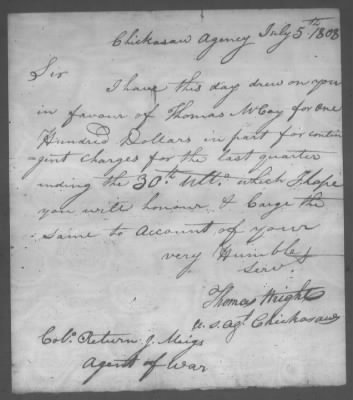 Chickasaw Agency July 5th 1808
Sir
I have this day drew on you
in favour of Thomas McCoy for one
Hundred Dollars in part for contin
gent Charges for the last quarter
ending the 30th Ulto. which I hope
you will honour & Carge the
same to account of your
very Humble
Serv.
Thomas Wright
U.S. Agt Chickasaws
Colo. Return J. Meigs
Agent of War